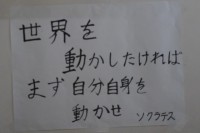 世界を
動かしたければ
まず自分自身を
動かせ ソクラテス